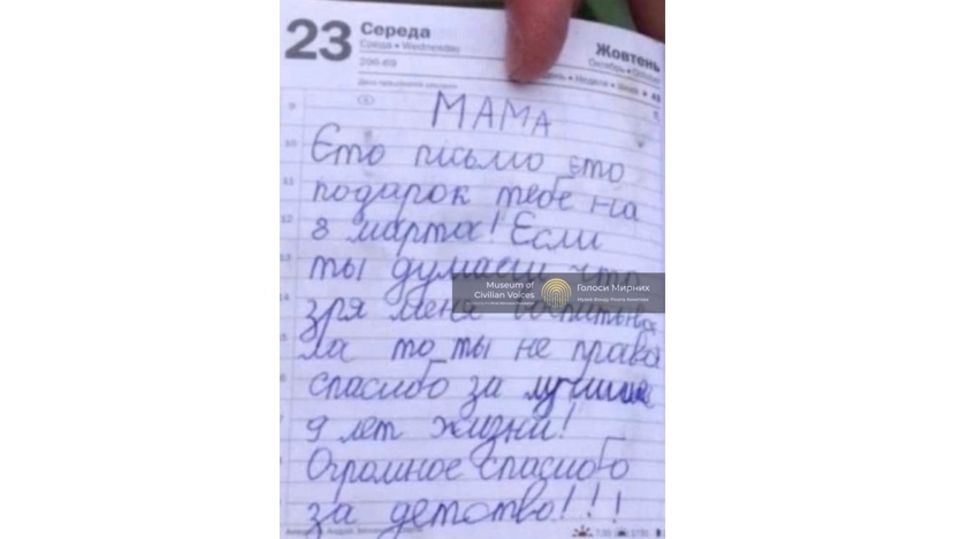 23 Середа
Среда • Wednesday
296-69
Жовтень
9
МАМА
10
Єто письмо єто
11
подарок тебе на
12
8 марта! Если
13
ты думаеш что
14
Museum of
Civilian Voices
Голоси Мирних
зря меня воспитыва
ла то ты не права
спасибо за лучшие
9 лет жизни!
Огромное спасибо
за детство!!!